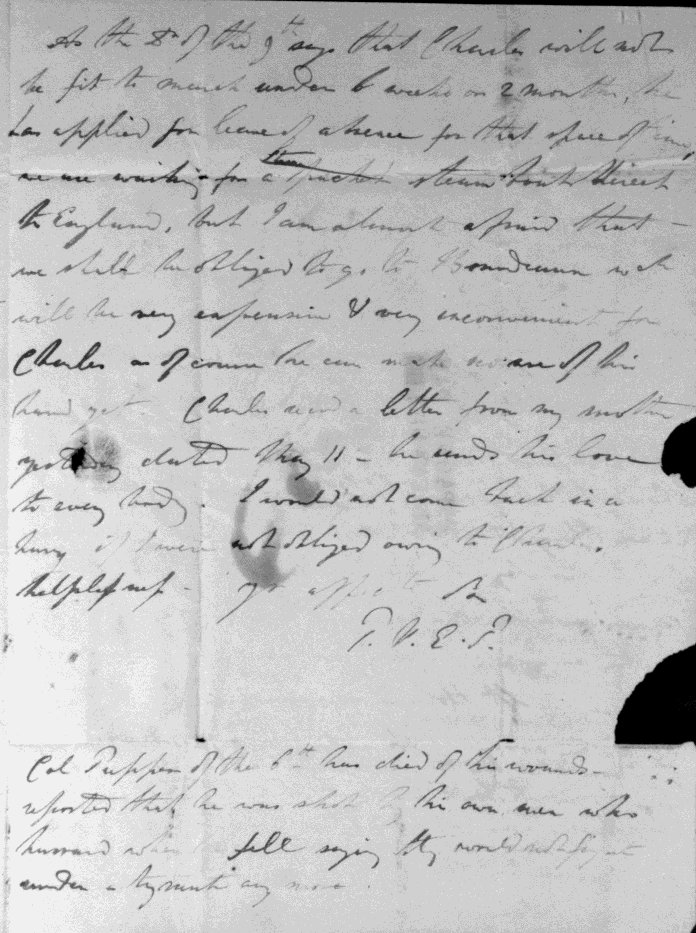 As the Dr of the 9th says that Charles will not
be fit to march under 6 weeks or 2 months, he
has applied for leave of absence for that space of time,
we are waiting for a packet steam boat direct
to England, but I am almost afraid that
we shall be obliged to go to
will be very expensive & very inconvenient for
Charles as of course he can make no use of his
hand yet. Charles recd a letter from my mother
yesterday dated May 11 - he sends his love
to every body. I would not come back in a
hurry if I were not obliged owing to Charles's
helplessness - yr affecte Br
T. V. E. T.
Col of the 6th has died of his wounds -
reported that he was shot by his own men who
hurraed when he fell saying they would not fight
under a tyrant any more.